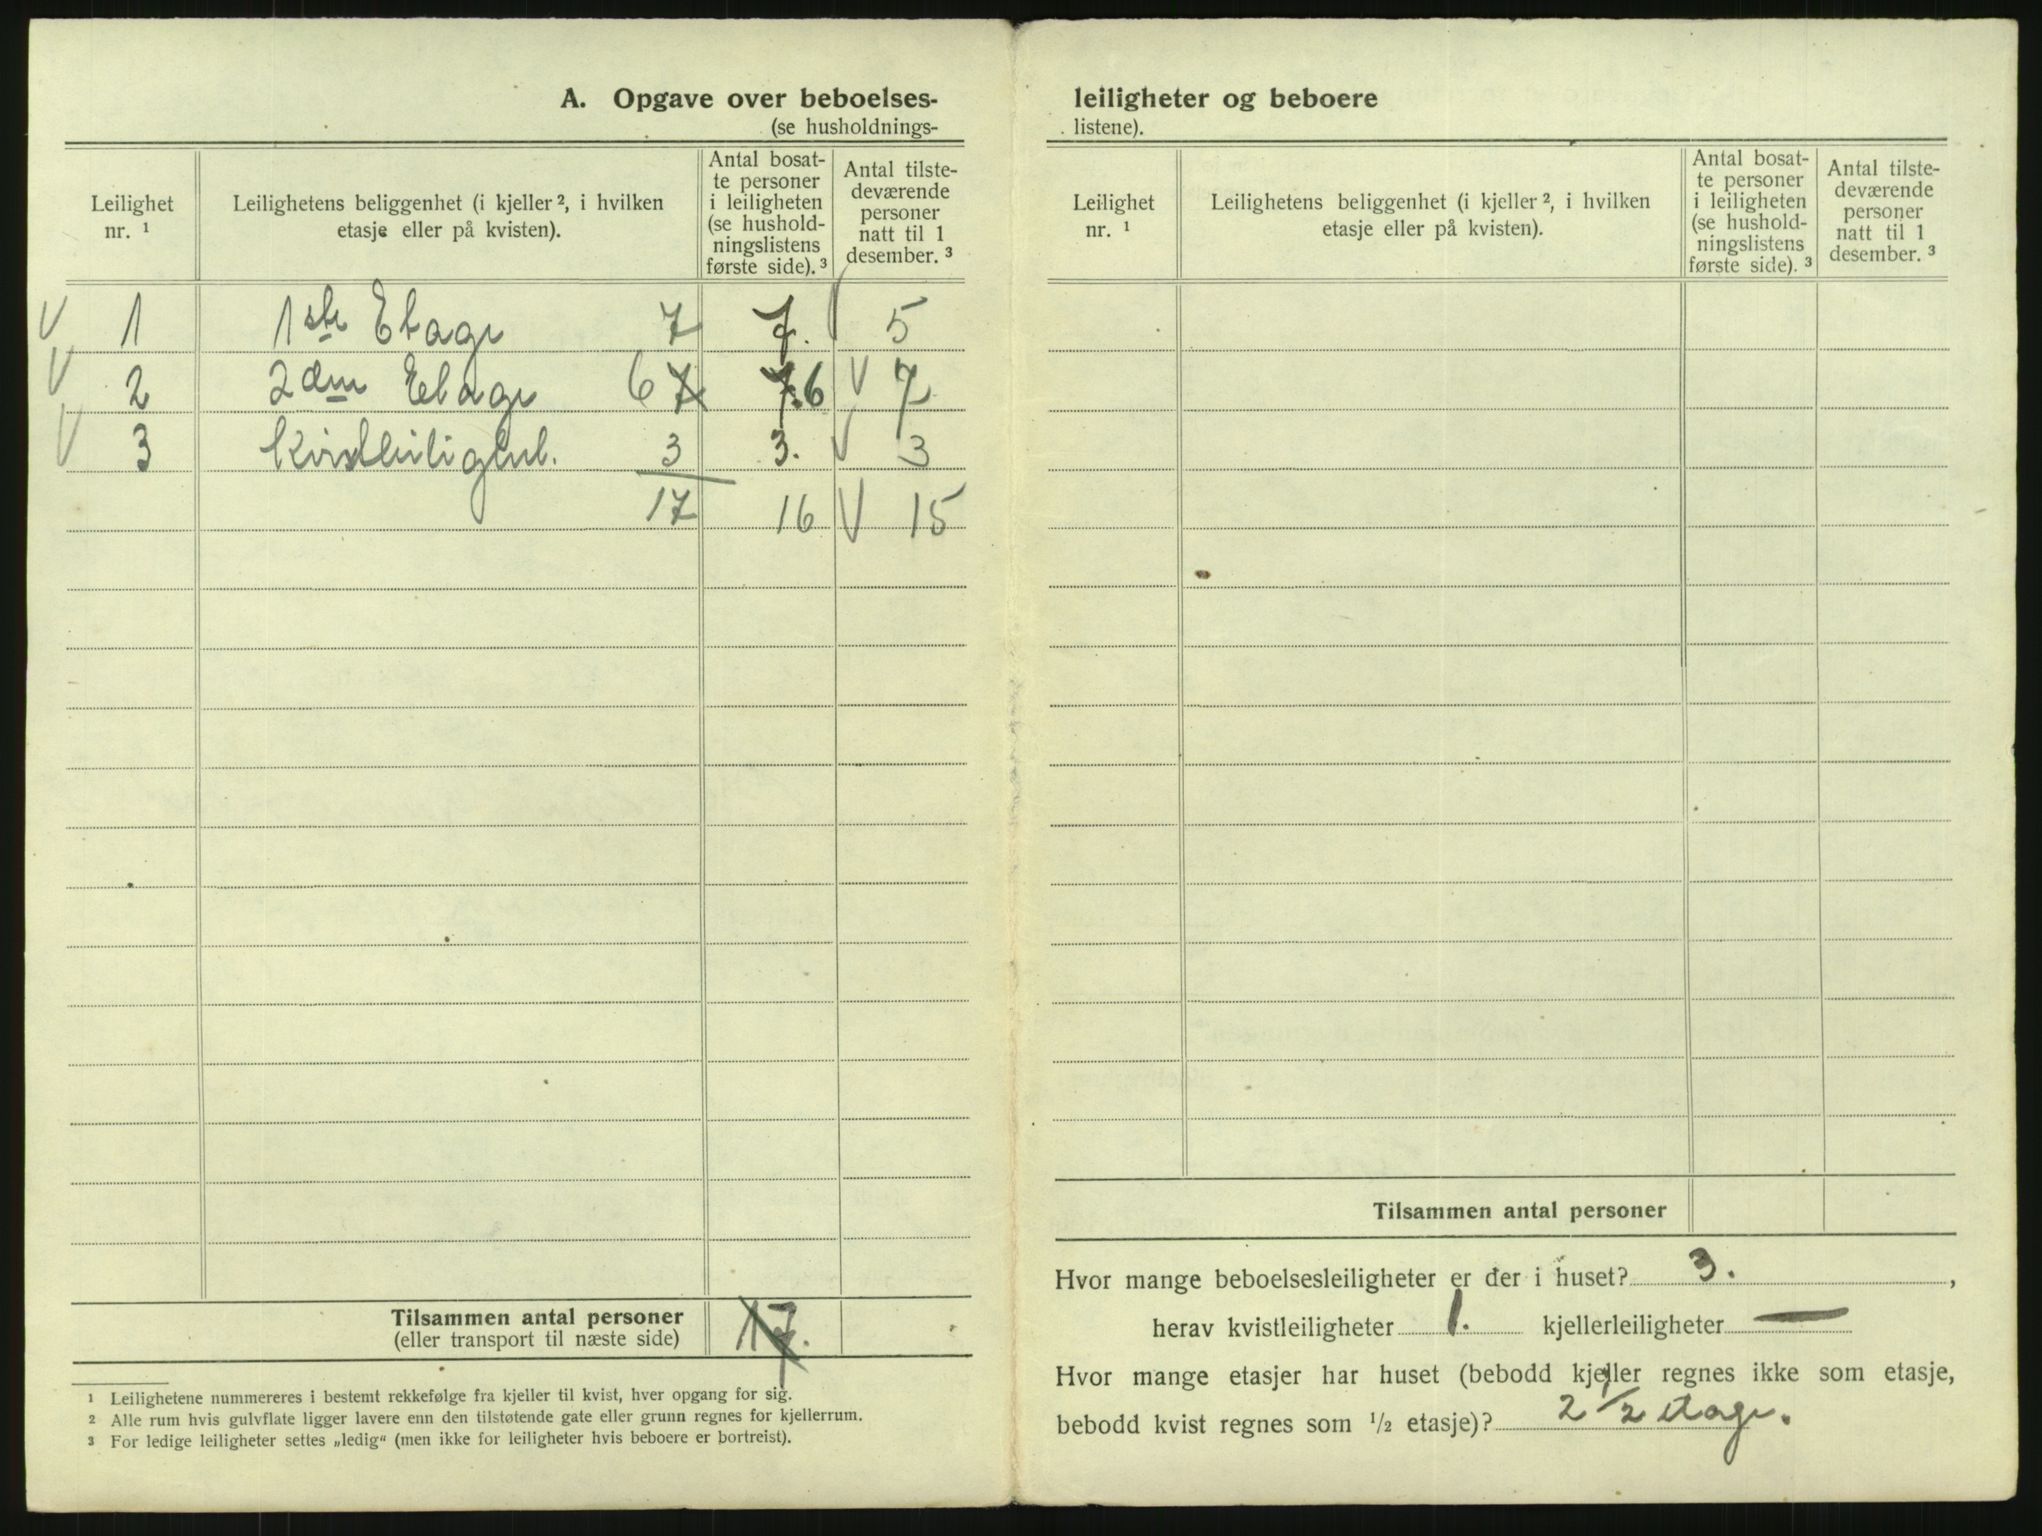 A. Opgave over beboelses-
(se husholdnings-
Leilighet nr. 1
Leilighetens beliggenhet (i kjeller 2, i hvilken etasje eller på kvisten).
Antal bosat-
te personer
i leiligheten
(se hushold-
ningslistens
første side). 3
Antal tilste-
deværende
personer
natt til 1
desember. 3
V 1 1ste Etage 7 7. V 5
V 2 2den Etage 6 7 7.6 V 7
V 3 Kvistleilighet. 3 3. V 3
17 16 V 15
Tilsammen antal personer 17.
(eller transport til næste side)
1 Leilighetene nummereres i bestemt rekkefølge fra kjeller til kvist, hver opgang for sig.
2 Alle rum hvis gulvflate ligger lavere enn den tilstøtende gate eller grunn regnes for kjellerrum.
3 For ledige leiligheter settes „ledig“ (men ikke for leiligheter hvis beboere er bortreist).
leiligheter og beboere
listene).
Leilighet nr. 1
Leilighetens beliggenhet (i kjeller 2, i hvilken etasje eller på kvisten).
Antal bosat-
te personer
i leiligheten
(se hushold-
ningslistens
første side). 3
Antal tilste-
deværende
personer
natt til 1
desember. 3
Tilsammen antal personer
Hvor mange beboelsesleiligheter er der i huset? 3. ,
herav kvistleiligheter 1. kjellerleiligheter —
Hvor mange etasjer har huset (bebodd kjeller regnes ikke som etasje,
bebodd kvist regnes som 1/2 etasje)? 2 1/2 etage.